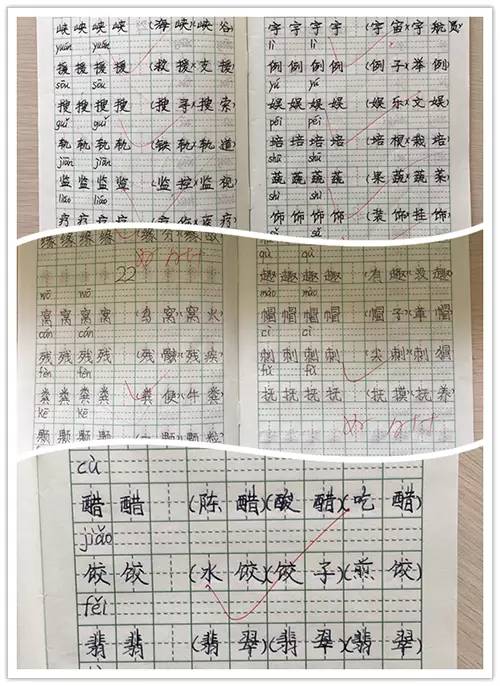 峡 峡 峡 峡 (海 峡)(峡 谷)
yuán yuán
援 援 援 援 (救 援)(支 援)
sōu sōu
搜 搜 搜 搜 (搜 寻)(搜 索)
guǐ guǐ
轨 轨 轨 轨 (铁 轨)(轨 道)
jiān jiān
监 监 监 监 (监 控)(监 视)
liáo liáo
疗 疗 疗 疗
宇 宇 宇 宇 (宇 宙)(宇 航员)
lì lì
例 例 例 例 (例 子)(举 例)
yú yú
娱 娱 娱 娱 (娱 乐)(文 娱)
péi péi
培 培 培 培 (培 根)(栽 培)
shū shū
蔬 蔬 蔬 蔬 (果 蔬)(蔬 菜)
shì shì
饰 饰 饰 饰 (装 饰)(挂 饰)
缘 缘 缘 缘
22
wō wō
窝 窝 窝 窝 (鸟 窝)(窝 火)
cán cán
残 残 残 残
fèn fèn
粪 粪 粪 粪 (粪 便)(牛 粪)
kē kē
颗 颗 颗 颗
qù qù
趣 趣 趣 趣 (有 趣)(没 趣)
mào mào
帽 帽 帽 帽 (帽 子)(草 帽)
cì cì
刺 刺 刺 刺 (尖 刺)(刺 猬
fǔ fǔ
抚 抚 抚 抚 (抚 摸)(抚 养)
cù
醋 醋 (陈 醋)(酸 醋)(吃 醋)
jiǎo
饺 饺 (水 饺)(饺 子)(煎 饺)
fěi
翡 翡 (翡 翠)(翡 翠)(翡 翠)